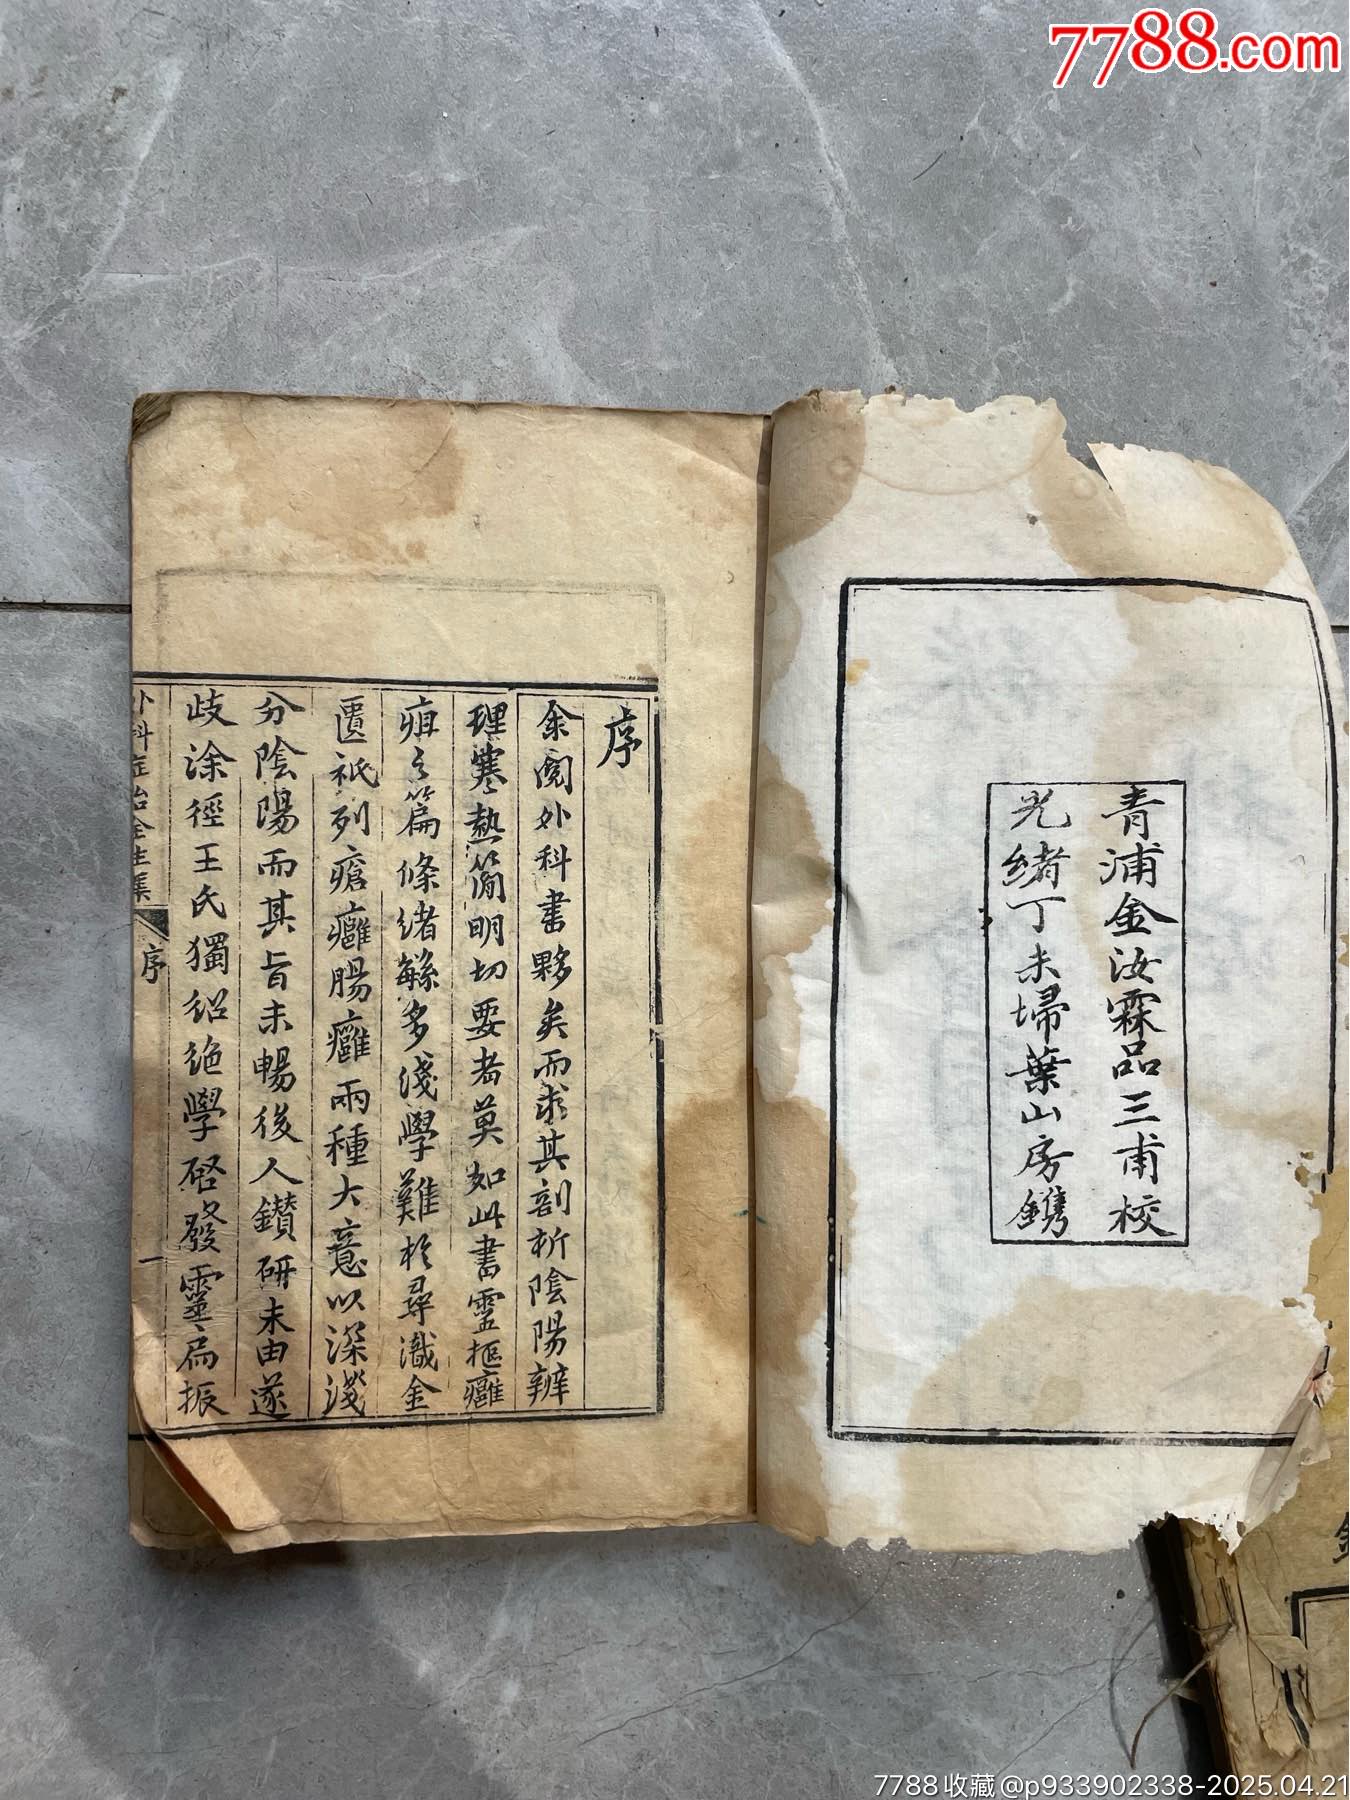 7788.com
青浦金汝霖品三甫校
光緒丁未埽葉山房鐫
序
余閱外科書夥矣而求其剖析陰陽辨
理寒熱簡明切要者莫如此書靈樞癰
疽之篇條緒繇多淺學難於尋識金
匱祇列瘡癰腸癰兩種大意以深淺
分陰陽而其旨未暢後人鑽研未由遂
歧涂徑王氏獨紹絶學啓發靈扃振
外科症治全生集
序
一
7788收藏@p933902338-2025.04.21